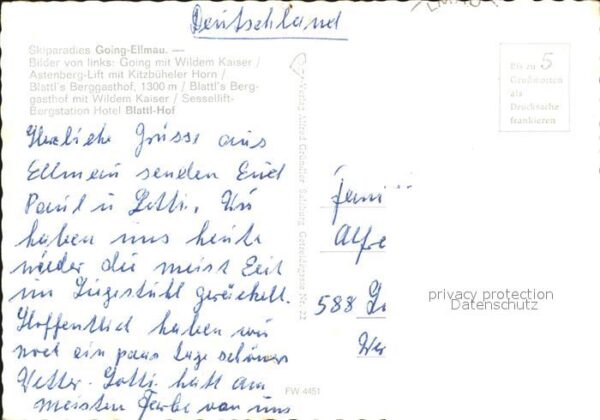 Deutschland
Skiparadies Going-Ellmau. —
Bilder von links: Going mit Wildem Kaiser /
Astenberg-Lift mit Kitzbüheler Horn /
Blattl's Berggasthof, 1300 m / Blattl's Berg-
gasthof mit Wildem Kaiser / Sessellift-
Bergstation Hotel Blattl-Hof
Bis zu 5
Grußworten
als
Drucksache
frankieren
Herzliche Grüsse aus
Ellmau senden Euch
Paul u Lotti. Wir
haben uns heute
wieder die meist Zeit
im Liegestuhl
Hoffentlich haben wir
noch ein paar Tage schönes
Wetter. Lotti hatt am
meisten Farbe von uns
Verlag Alfred Gründler Salzburg Nr. 22
Fami
Alfre
588 Lü
Wer
privacy protection
Datenschutz
FW-4451